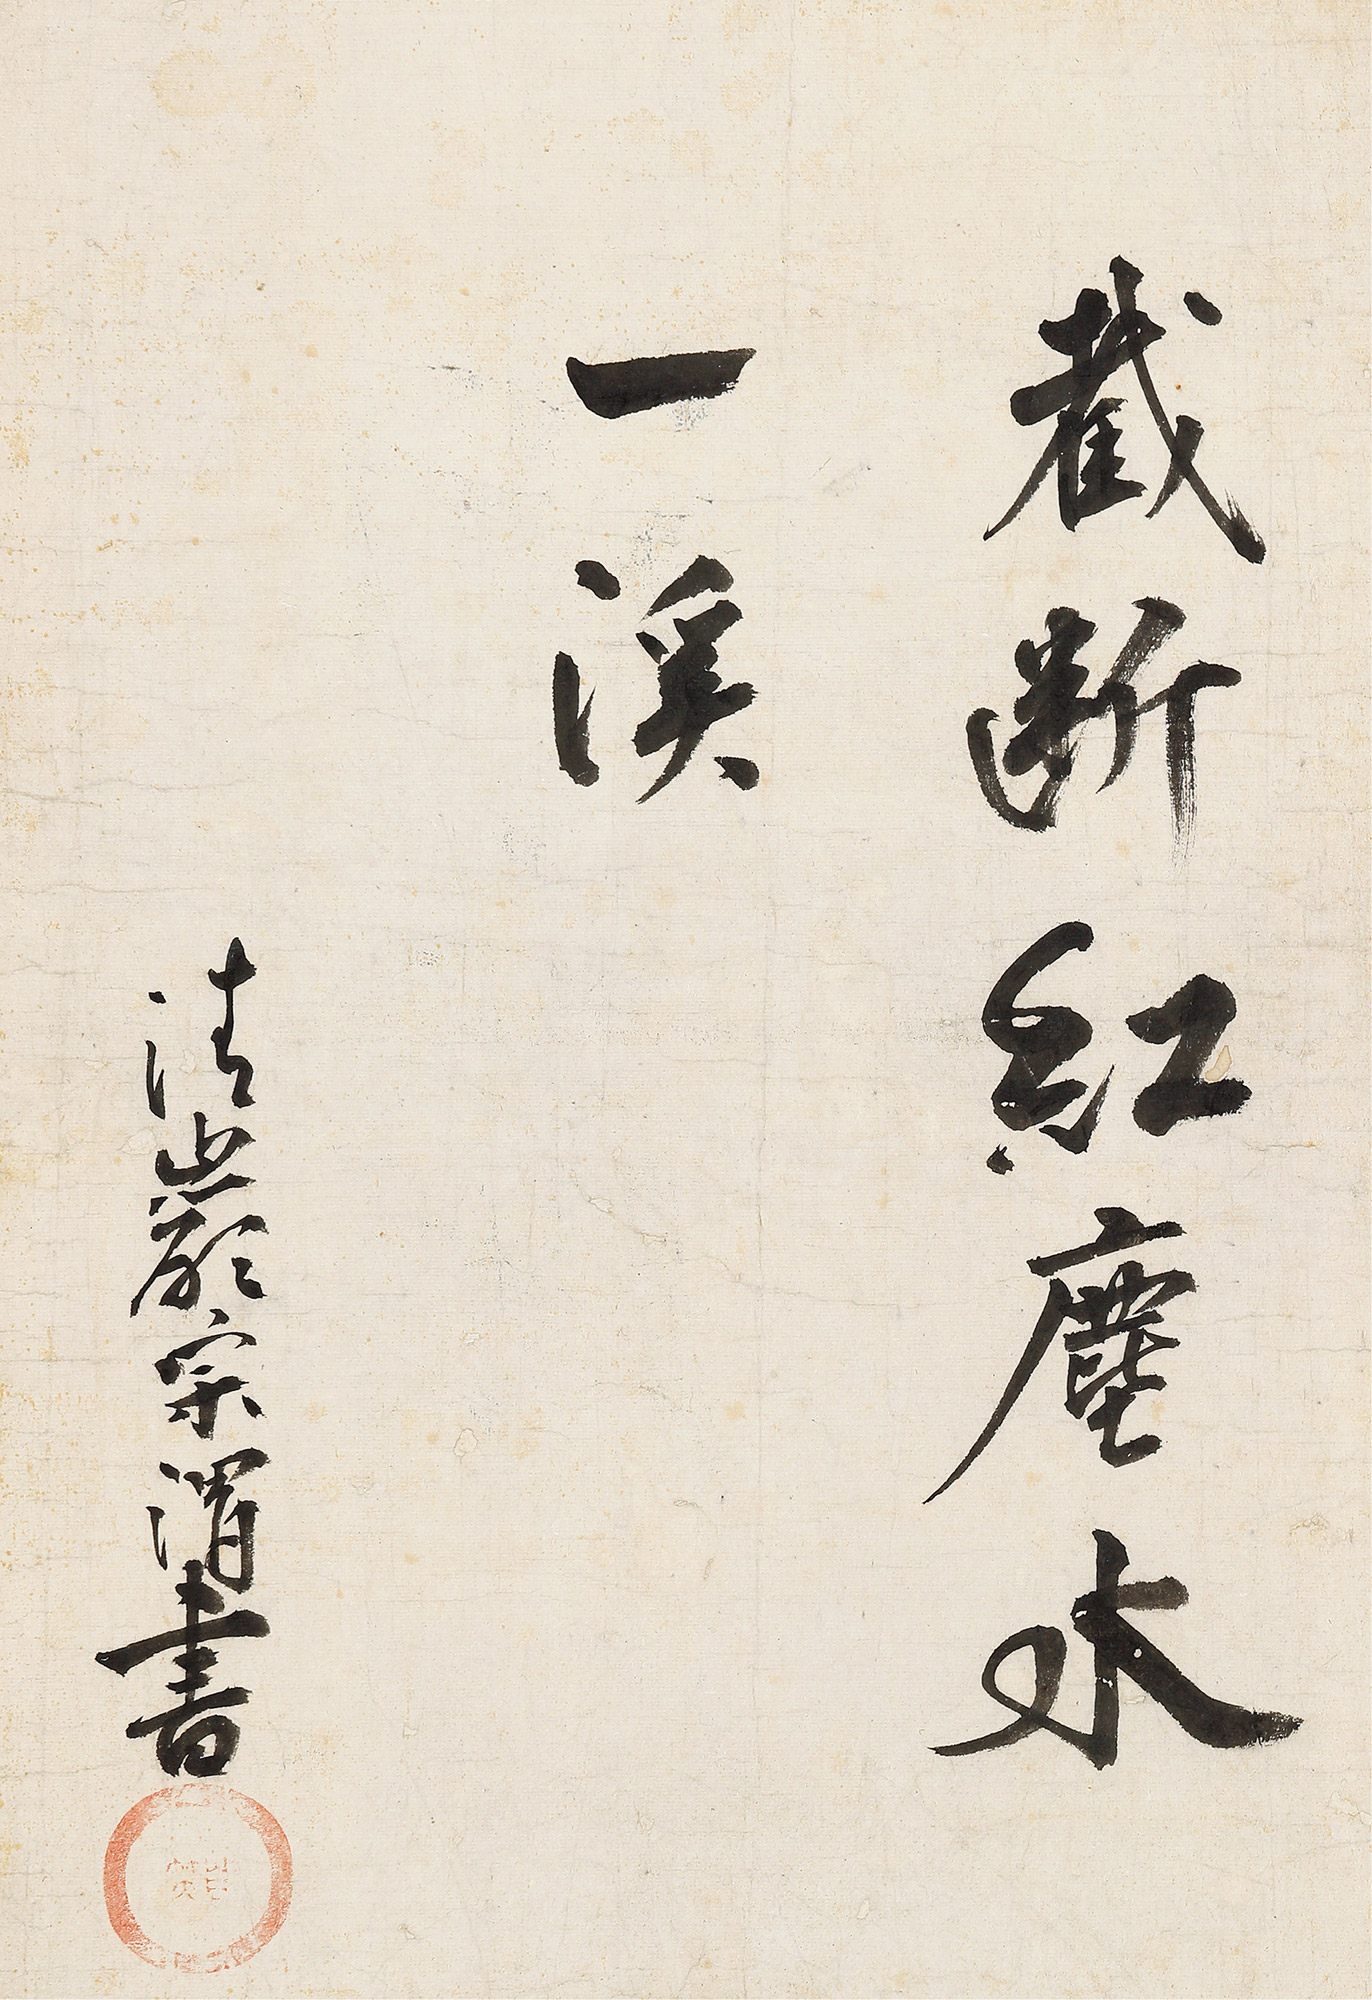 截断紅塵水
一溪
清巖宗渭書